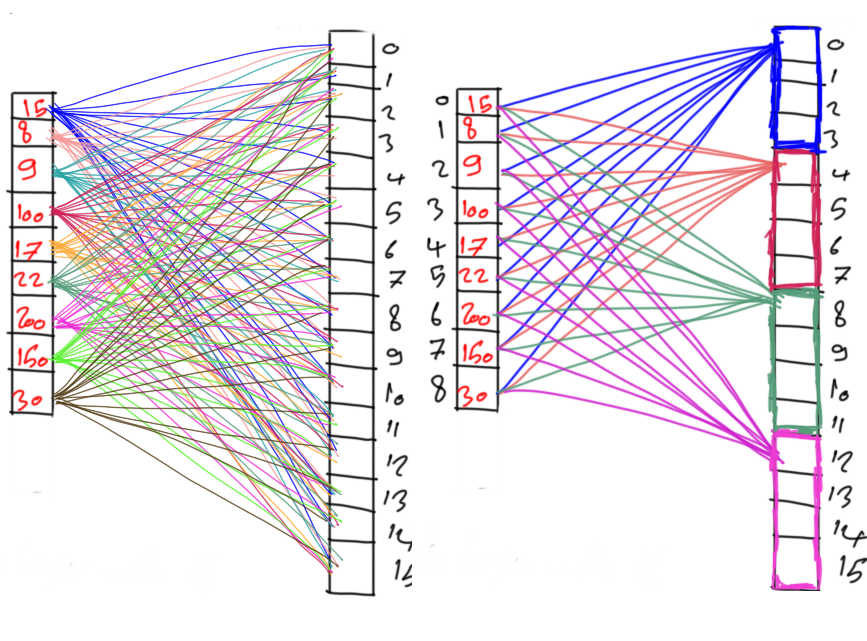 15
8
9
100
17
22
200
150
30
0
1
2
3
4
5
6
7
8
9
10
11
12
13
14
15
0 15
1 8
2 9
3 100
4 17
5 22
6 200
7 150
8 30
0
1
2
3
4
5
6
7
8
9
10
11
12
13
14
15